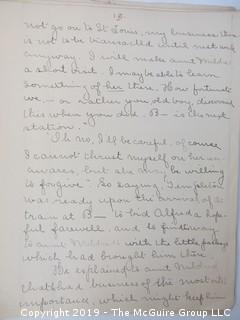 19.
not go on to St Louis, my business there
is not to be transacted until next week
anyway. I will make aunt Mildred
a short visit. I may be able to learn
something of her there. How fortunate
we, — or rather you old boy, discovered
this when you did. B— is the next
station."
"Oh no, I'll be careful, of course
I cannot thrust myself on her un-
awares, but she may be willing
to forgive" So saying, Templeton
was ready upon the arrival of the
train at B— to bid Alfred a hope-
ful farewell, and to find his way
to aunt Mildred's with the little package
which had brought him there.
He explained to aunt Mildred
that he had business of the most
importance, which might keep him
Copyright 2019 - The McGuire Group, LLC